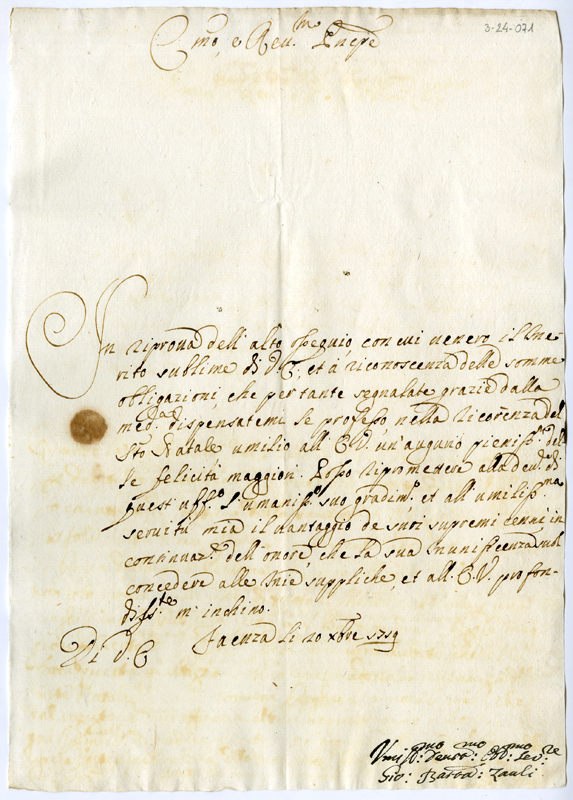 3-24-071
Em̃o, e Reu.mo Pñcpe
In riproua dell' alto ossequio, con cui uenero il Me-
rito sublime di V. E., et à riconoscenza delle somme
obbligazioni, che per tante segnalate grazie dalla
med.a dispensatemi le professo, nella ricorenza del
Sto Natale umilio all' E. V. un' auguro pieniss.o del-
le felicità maggiori. Posso ripromettere alla deu.ne di
quest' uff.o l' umaniss.o suo gradim.o, et all' umiliss.ma
seruitù mia il uantaggio de suoi supremi cenni, in
continuaz.ne dell' onore, che la sua Munificenza suol
concedere alle mie suppliche, et all' E. V. profon-
diss.te m' inchino.
Di V. E Faenza li 20 Xbre 1719
Vmil.mo Deuot.mo Obb.mo Ser.re
Gio: Batta: Zauli